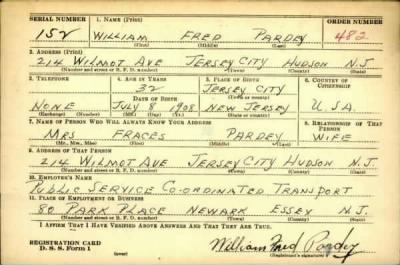 SERIAL NUMBER 1. NAME (Print) ORDER NUMBER
152 WILLIAM FRED PARDEY 482
(First) (Middle) (Last)
2. ADDRESS (Print)
214 WILMOT AVE JERSEY CITY HUDSON N.J
(Number and street or R. F. D. number) (Town) (County) (State)
3. TELEPHONE 4. AGE IN YEARS 5. PLACE OF BIRTH 6. COUNTRY OF CITIZENSHIP
32 JERSEY CITY
DATE OF BIRTH (Town or county)
NONE JULY 8 1908 NEW JERSEY U.S.A.
(Exchange) (Number) (Mo.) (Day) (Yr.) (State or country)
7. NAME OF PERSON WHO WILL ALWAYS KNOW YOUR ADDRESS 8. RELATIONSHIP OF THAT PERSON
MRS FRACES PARDEY WIFE
(Mr., Mrs., Miss) (First) (Middle) (Last)
9. ADDRESS OF THAT PERSON
214 WILMOT AVE JERSEY CITY HUDSON N.J.
(Number and street or R. F. D. number) (Town) (County) (State)
10. EMPLOYER'S NAME
PUBLIC SERVICE CO-ORDINATED TRANSPORT
11. PLACE OF EMPLOYMENT OR BUSINESS
80 PARK PLACE NEWARK ESSEX N.J.
(Number and street or R. F. D. number) (Town) (County) (State)
I AFFIRM THAT I HAVE VERIFIED ABOVE ANSWERS AND THAT THEY ARE TRUE.
REGISTRATION CARD
D. S. S. Form 1
William Fred Pardey
(Registrant's signature)